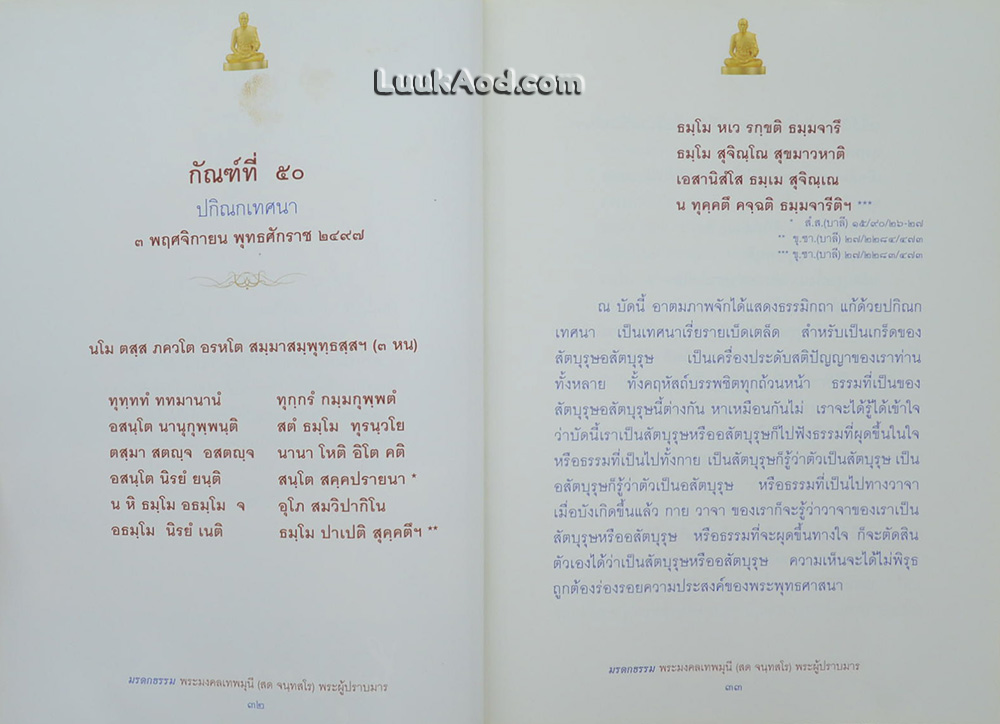 LuukAod.com
กัณฑ์ที่ ๕๐
ปกิณกเทศนา
๓ พฤศจิกายน พุทธศักราช ๒๔๙๗
นโม ตสฺส ภควโต อรหโต สมฺมาสมฺพุทฺธสฺสฯ (๓ หน)
ทุทฺททํ ททมานานํ ทุกฺกรํ กมฺมกุพฺพตํ
อสนฺโต นานุกุพฺพนฺติ สตํ ธมฺโม ทุรนฺวโย
ตสฺมา สตญฺจ อสตญฺจ นานา โหติ อิโต คติ
อสนฺโต นิรยํ ยนฺติ สนฺโต สคฺคปรายนา *
น หิ ธมฺโม อธมฺโม จ อุโภ สมวิปากิโน
อธมฺโม นิรยํ เนติ ธมฺโม ปาเปติ สุคฺคตึฯ **
มรดกธรรม พระมงคลเทพมุนี (สด จนฺทสโร) พระผู้ปราบมาร
๓๒
ธมฺโม หเว รกฺขติ ธมฺมจารึ
ธมฺโม สุจิณฺโณ สุขมาวหาติ
เอสานิสํโส ธมฺเม สุจิณฺเณ
น ทุคฺคตึ คจฺฉติ ธมฺมจารีติฯ ***
* สํ.ส.(บาลี) ๑๕/๙๐/๒๖-๒๗
** ขุ.ชา.(บาลี) ๒๗/๒๒๘๔/๔๗๓
*** ขุ.ชา.(บาลี) ๒๗/๒๒๘๓/๔๗๓
ณ บัดนี้ อาตมภาพจักได้แสดงธรรมิกถา แก้ด้วยปกิณก
เทศนา เป็นเทศนาเรี่ยรายเบ็ดเตล็ด สำหรับเป็นเกร็ดของ
สัตบุรุษอสัตบุรุษ เป็นเครื่องประดับสติปัญญาของเราท่าน
ทั้งหลาย ทั้งคฤหัสถ์บรรพชิตทุกถ้วนหน้า ธรรมที่เป็นของ
สัตบุรุษอสัตบุรุษนี้ต่างกัน หาเหมือนกันไม่ เราจะได้รู้ได้เข้าใจ
ว่าบัดนี้เราเป็นสัตบุรุษหรืออสัตบุรุษก็ไปฟังธรรมที่ผุดขึ้นในใจ
หรือธรรมที่เป็นไปทั้งกาย เป็นสัตบุรุษก็รู้ว่าตัวเป็นสัตบุรุษ เป็น
อสัตบุรุษก็รู้ว่าตัวเป็นอสัตบุรุษ หรือธรรมที่เป็นไปทางวาจา
เมื่อบังเกิดขึ้นแล้ว กาย วาจา ของเราก็จะรู้ว่าวาจาของเราเป็น
สัตบุรุษหรืออสัตบุรุษ หรือธรรมที่จะผุดขึ้นทางใจ ก็จะตัดสิน
ตัวเองได้ว่าเป็นสัตบุรุษหรืออสัตบุรุษ ความเห็นจะได้ไม่พิรุธ
ถูกต้องร่องรอยความประสงค์ของพระพุทธศาสนา
มรดกธรรม พระมงคลเทพมุนี (สด จนฺทสโร) พระผู้ปราบมาร
๓๓